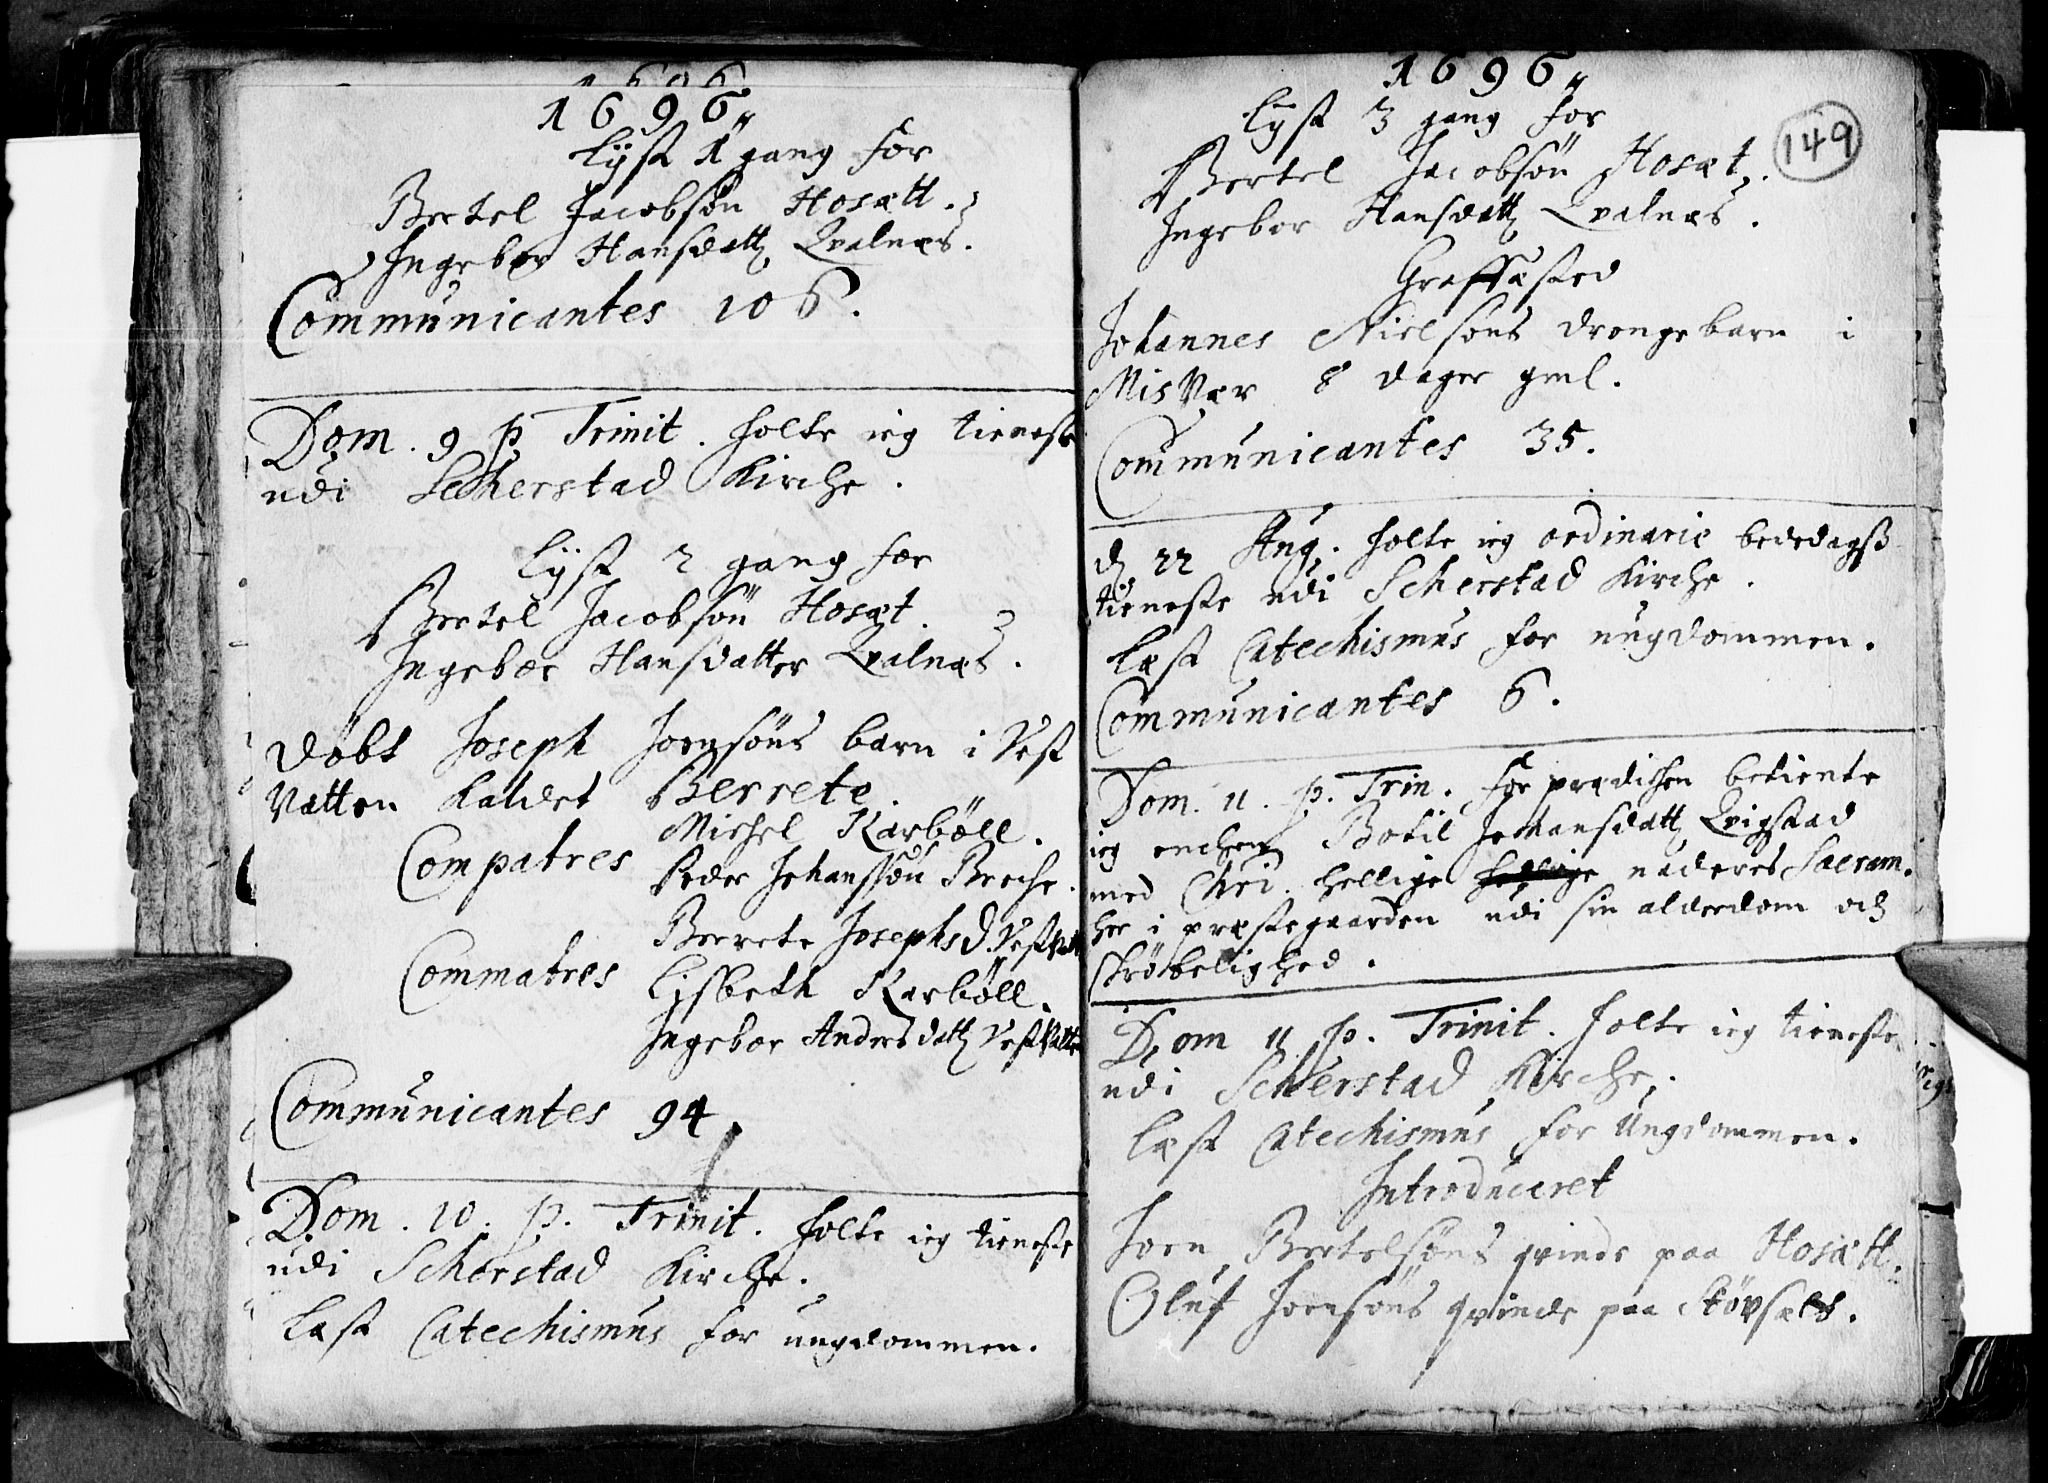 1696
1696„
Lyst 1 gang for
Bertel Jacobsøn Hosætt.
Ingebor Hansdatt Qvalnæs.
Communicantes 106.
Dom. 9 p Trinit. holte ieg tieneste
udi Scherstad Kirche.
Lyst 2 gang for
Bertel Jacobsøn Hosæt.
Ingebor Hansdatter Qvalnæs.
Døbt Joseph Joensøns barn i Vest
Vatten kaldet Berrete.
Michel Karbøll.
Compatres Peder Johanssøn Breche.
Berrete Josephsd. Vestvatt
Commatres Lisbeth Karbøll.
Ingebor Andersdatt Vestvatte
Communicantes 94
Dom. 10. p. Trinit. holte ieg tieneste
udi Scherstad Kirche.
Læst Catechismus for ungdommen.
1696„
149
Lyst 3 gang for
Bertel Jacobsøn Hosæt.
Ingebor Hansdatt Qvalnæs.
Graffæsted
Johannes Nielsøns drengebarn i
Misvær 8 dager gml.
Communicantes 35.
d. 22 Aug. holte ieg ordinarie bededagß
tieneste udi Scherstad Kirche.
Læst Catechismus for ungdommen.
Communicantes 6.
Dom. 11. p. Trin. for prædichen betiente
ieg enchen Botil Johansdatt Qvigstad
med Chri. hellige hellige naderes Sacram.
her i præstegaarden udi sin alderdom och
skrøbelighed.
Dom 11 p. Trinit. holte ieg tieneste
udi Scherstad Kirche.
Læst Catechismus for Ungdommen.
Introduceret
Joen Bertelsøns qvinde paa Hosætt.
Oluf Joensøns qvinde paa Støvsæt.